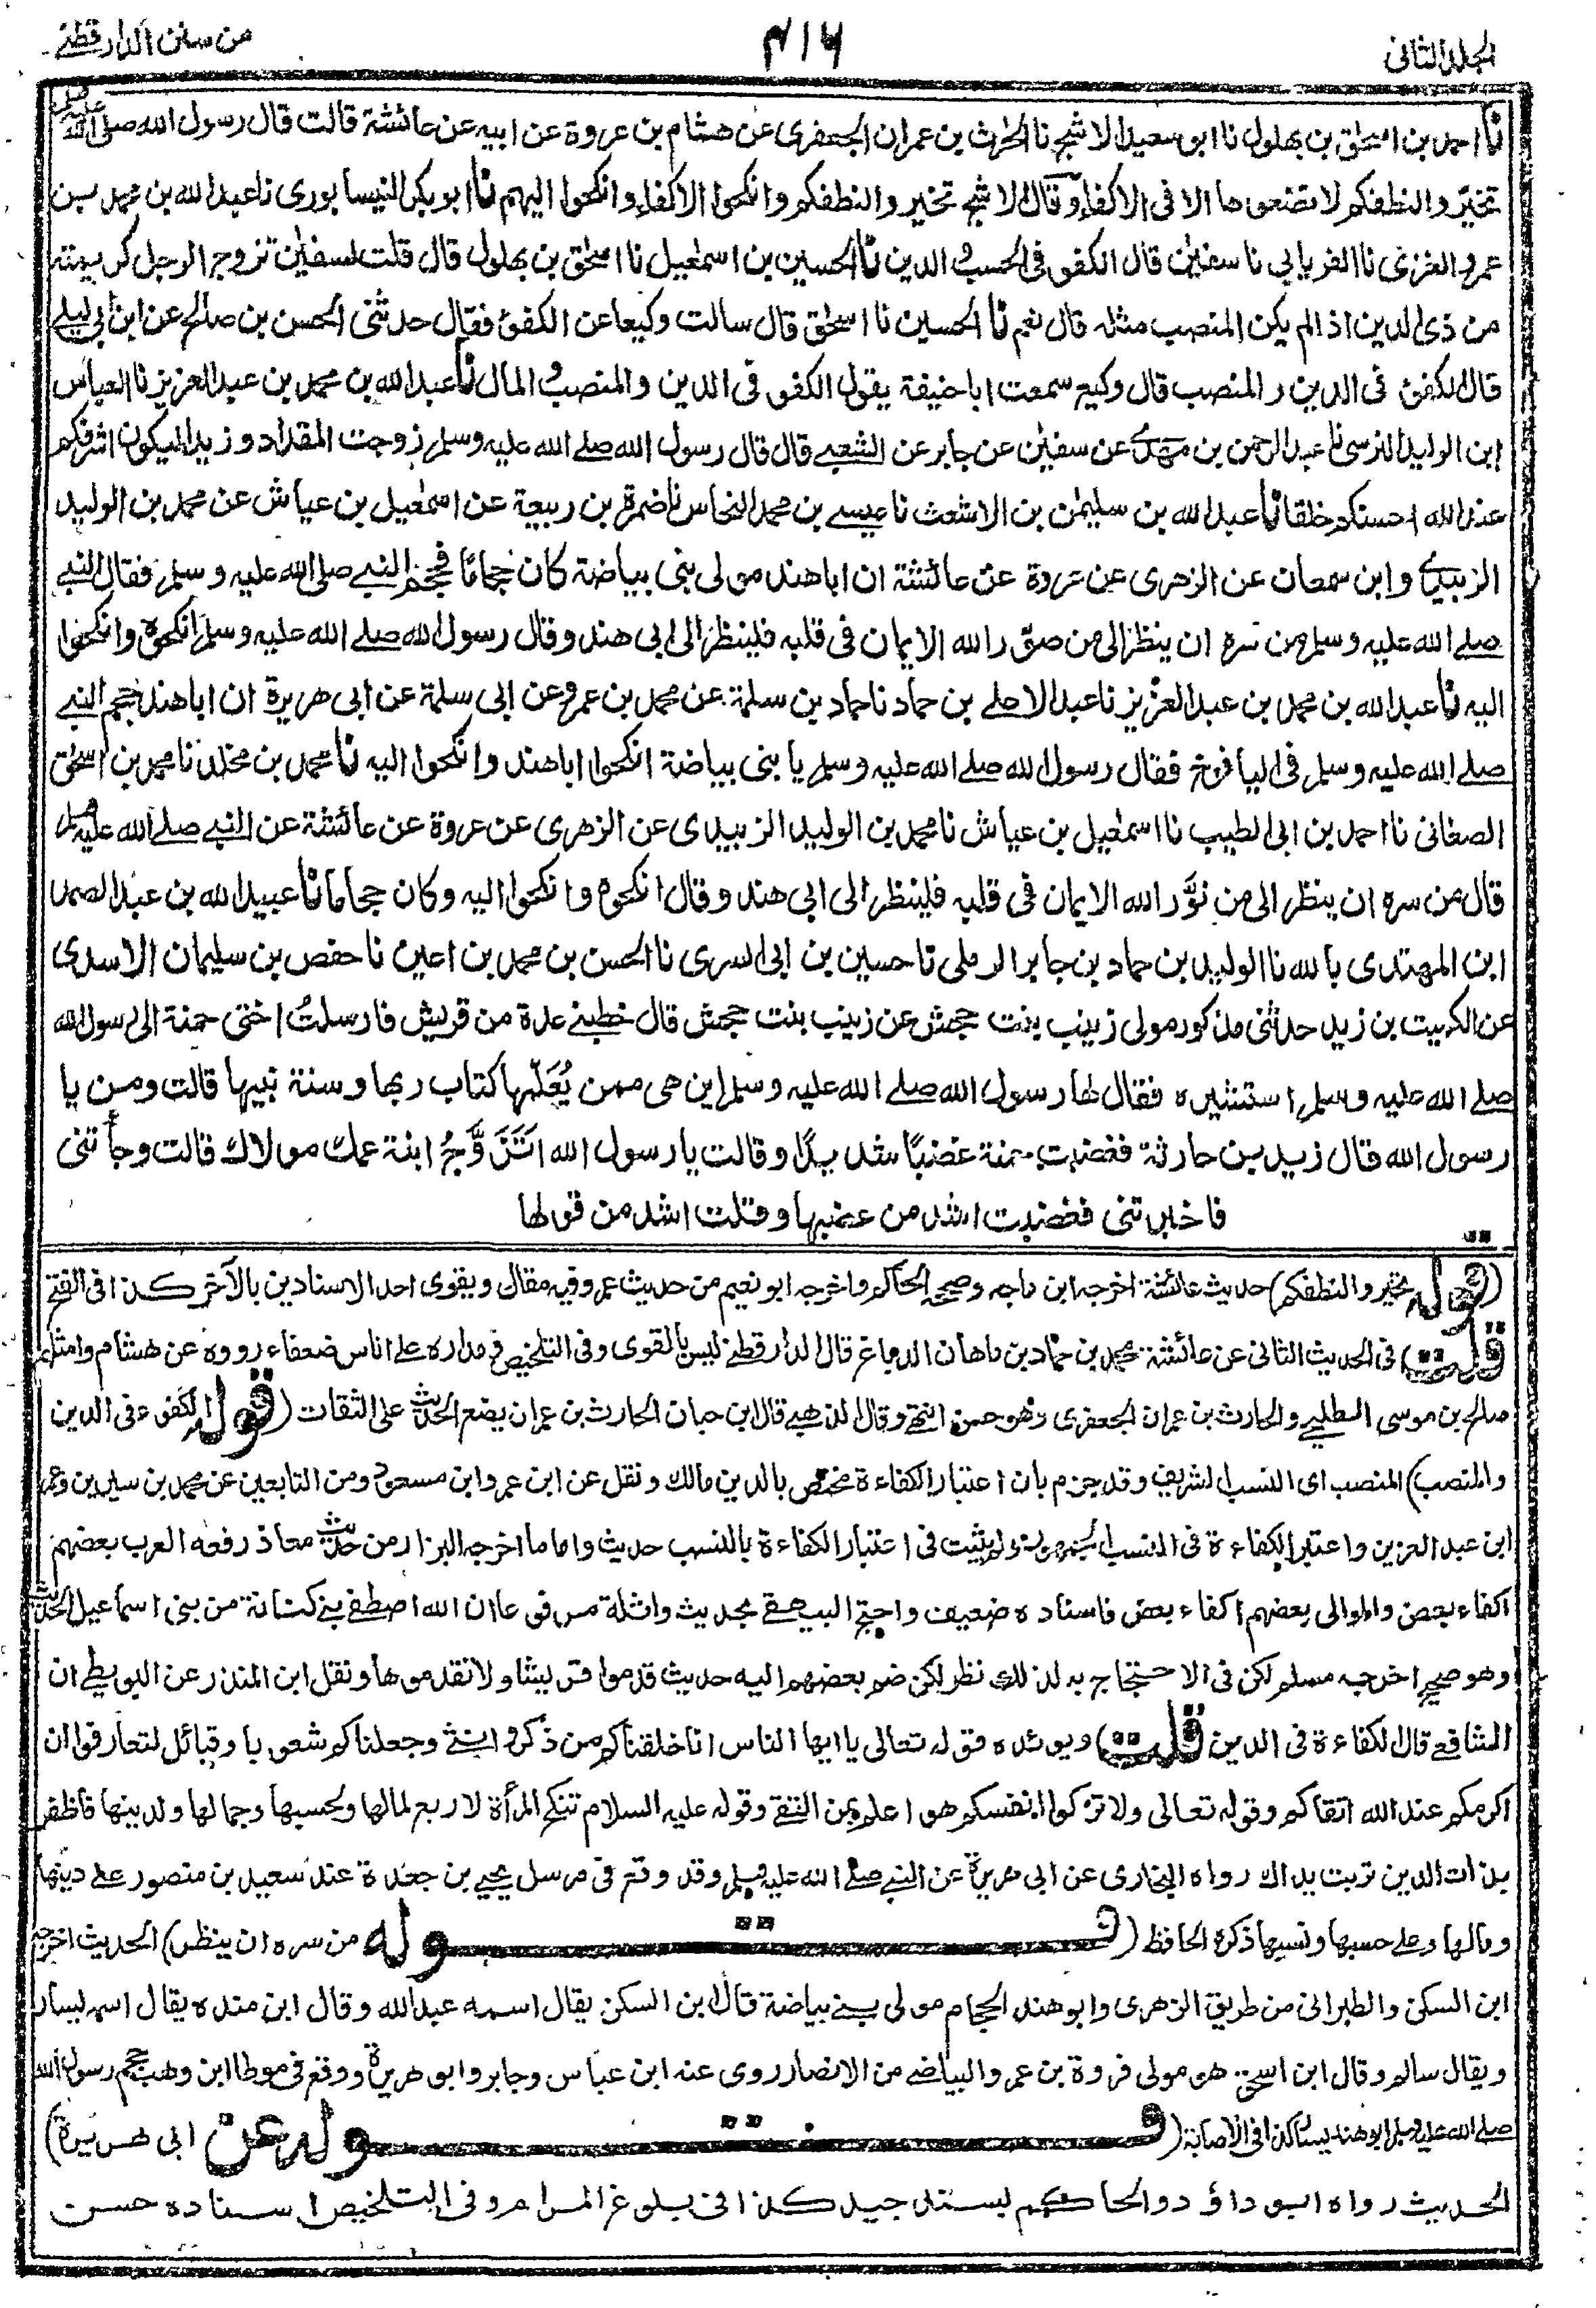 الجلد الثانى
٤١٦
من سنن الدارقطنے
نا احمد بن اسحٰق بن بهلول نا ابو سعيد الاشج نا الحٰرث بن عمران الجعفرى عن هشام بن عروة عن ابيه عن عائشة قالت قال رسول الله صلى الله عليه وسلم
تخيّر والنطفكم لا تضعوها الا فى الاكفاء وقال الاشج تخير والنطفكم وانكحوا الاكفاء وانكحوا اليهم نا ابو بكر النيسابورى نا عبد الله بن محمد بن
عمرو الغزى نا الفريابي نا سفيٰن قال الكفو فى الحسب و الدين نا الحسين بن اسمٰعيل نا اسحٰق بن بهلول قال قلت لسفيٰن تزوج الرجل كريمته
من ذى الدين اذا لم يكن المنصب مثله قال نعم نا الحسين نا اسحٰق قال سالت وكيعا عن الكفؤ فقال حدثنى الحسن بن صالح عن ابن ابى ليلے
قال الكفؤ فى الدين و المنصب قال وكيع سمعت ابا حنيفة يقول الكفو فى الدين والمنصب و المال نا عبد الله بن محمد بن عبد العزيز نا العباس
ابن الوليد النرسى نا عبد الرحمن بن مهدے عن سفيٰن عن جابر عن الشعبے قال قال رسول الله صلے الله عليه وسلم زوجت المقداد وزيد اليكون اشرفكم
عند الله احسنكم خلقا نا عبد الله بن سليمٰن بن الاشعث نا عيسے بن محمد النحاس نا ضمرة بن ربيعة عن اسمٰعيل بن عياش عن محمد بن الوليد
الزبيدے وابن سمعان عن الزهرى عن عروة عن عائشة ان ابا هند مولى بنى بياضة كان حجاما فحجم النبے صلى الله عليه وسلم فقال النبے
صلے الله عليه وسلم من سره ان ينظر الى من صوّر الله الايمان فى قلبه فلينظر الى ابى هند وقال رسول الله صلے الله عليه وسلم انكحوه وانكحوا
اليه نا عبد الله بن محمد بن عبد العزيز نا عبد الاعلے بن حماد نا حماد بن سلمة عن محمد بن عمرو عن ابى سلمة عن ابى هريرة ان ابا هند حجم النبے
صلے الله عليه وسلم فى اليافوخ فقال رسول الله صلے الله عليه وسلم يا بنى بياضة انكحوا ابا هند وانكحوا اليه نا محمد بن مخلد نا محمد بن اسحٰق
الصغانى نا احمد بن ابى الطيب نا اسمٰعيل بن عياش نا محمد بن الوليد الزبيدى عن الزهرى عن عروة عن عائشة عن النبے صلے الله عليه وسلم
قال من سره ان ينظر الى من نوَّر الله الايمان فى قلبه فلينظر الى ابى هند وقال انكحوه وانكحوا اليه وكان حجاما نا عبيد الله بن عبد الصمد
ابن المهتدى بالله نا الوليد بن حماد بن جابر الرملى نا حسين بن ابى السرى نا الحسن بن محمد بن اعين نا حفص بن سليمان الاسدى
عن الكميت بن زيد حدثنى مذكور مولى زينب بنت جحش عن زينب بنت جحش قال خطبنے عدة من قريش فارسلتُ اختى حمنة الى رسول الله
صلے الله عليه وسلم استشيره فقال لها رسول الله صلے الله عليه وسلم اين هى ممن يُعَلّمها كتاب ربها وسنة نبيها قالت ومن يا
رسول الله قال زيد بن حارثة فغضبت حمنة غضبًا شديدًا وقالت يا رسول الله اَتَزَوَّجُ ابنة عمك مولاك قالت وجأتنى
فاخبرتنى فغضبت اشد من غضبها وقلت اشد من قولها
(قوله تخير والنطفكم) حديث عائشة اخرجه ابن ماجه وصححه الحاكم واخرجه ابو نعيم من حديث عمر وفيه مقال ويقوى احد الاسنادين بالآخر كذا فى الفتح
قلت) فى الحديث الثانى عن عائشة محمد بن حماد بن ماهان الدباغ قال الدارقطنے ليس بالقوى وفى التلخيص مداره على اناس ضعفاء رووه عن هشام وامثلهم
صالح بن موسى الطلحے والحارث بن عمران الجعفرى وهو حسن انتهے وقال الذهبے قال ابن حبان الحارث بن عمران يضع الحديث على الثقات (قوله الكفوء فى الدين
والمنصب) المنصب اى النسب الشريف وقد جزم بان اعتبار الكفاءة مختص بالدين مالك ونقل عن ابن عمر وابن مسعود ومن التابعين عن محمد بن سيرين وعمر
ابن عبد العزيز واعتبر الكفاءة فى النسب الجمهور ولم يثبت فى اعتبار الكفاءة بالنسب حديث واما ما اخرجه البزار من حديث معاذ رفعه العرب بعضهم
اكفاء بعض والموالى بعضهم اكفاء بعض فاسناده ضعيف واحتج البيهقے بحديث واثلة مرفوعا ان الله اصطفى بنے كنانة من بنى اسماعيل الحديث
وهو صحيح اخرجه مسلم لكن فى الاحتجاج به لذلك نظر لكن ضم بعضهم اليه حديث قدموا قريشا ولا تقدموها ونقل ابن المنذر عن البويطے ان
الشافعے قال الكفاءة فى الدين (قلت) ويوئده قوله تعالى يا ايها الناس انا خلقناكم من ذكر و انثے وجعلناكم شعوبا وقبائل لتعارفوا ان
اكرمكم عند الله اتقاكم وقوله تعالى ولا تزكوا انفسكم هو اعلم بمن اتقے وقوله عليه السلام تنكح المرأة لاربع لمالها ولحسبها وجمالها ولدينها فاظفر
بذات الدين تربت يداك رواه البخارى عن ابى هريرة عن النبے صلے الله عليه وسلم وقد وقع فى مرسل يحيے بن جعدة عند سعيد بن منصور على دينها
ومالها وعلے حسبها ونسبها ذكره الحافظ (قوله من سره ان ينظر) الحديث اخرجه
ابن السكن والطبرانى من طريق الزهرى وابو هند الحجام مولى بنے بياضة قال ابن السكن يقال اسمه عبد الله وقال ابن منده يقال اسمه يسار
ويقال سالم وقال ابن اسحٰق هو مولى فروة بن عمرو البياضے من الانصار روى عنه ابن عباس وجابر وابو هريرة ووقع فى موطا ابن وهب حجم رسول الله
صلے الله عليه وسلم ابو هند يسار كذا فى الاصابة (قوله عن ابى هريرة)
الحديث رواه ابو داؤد والحاكم بسند جيد كذا فى بلوغ المرام وفى التلخيص اسناده حسن